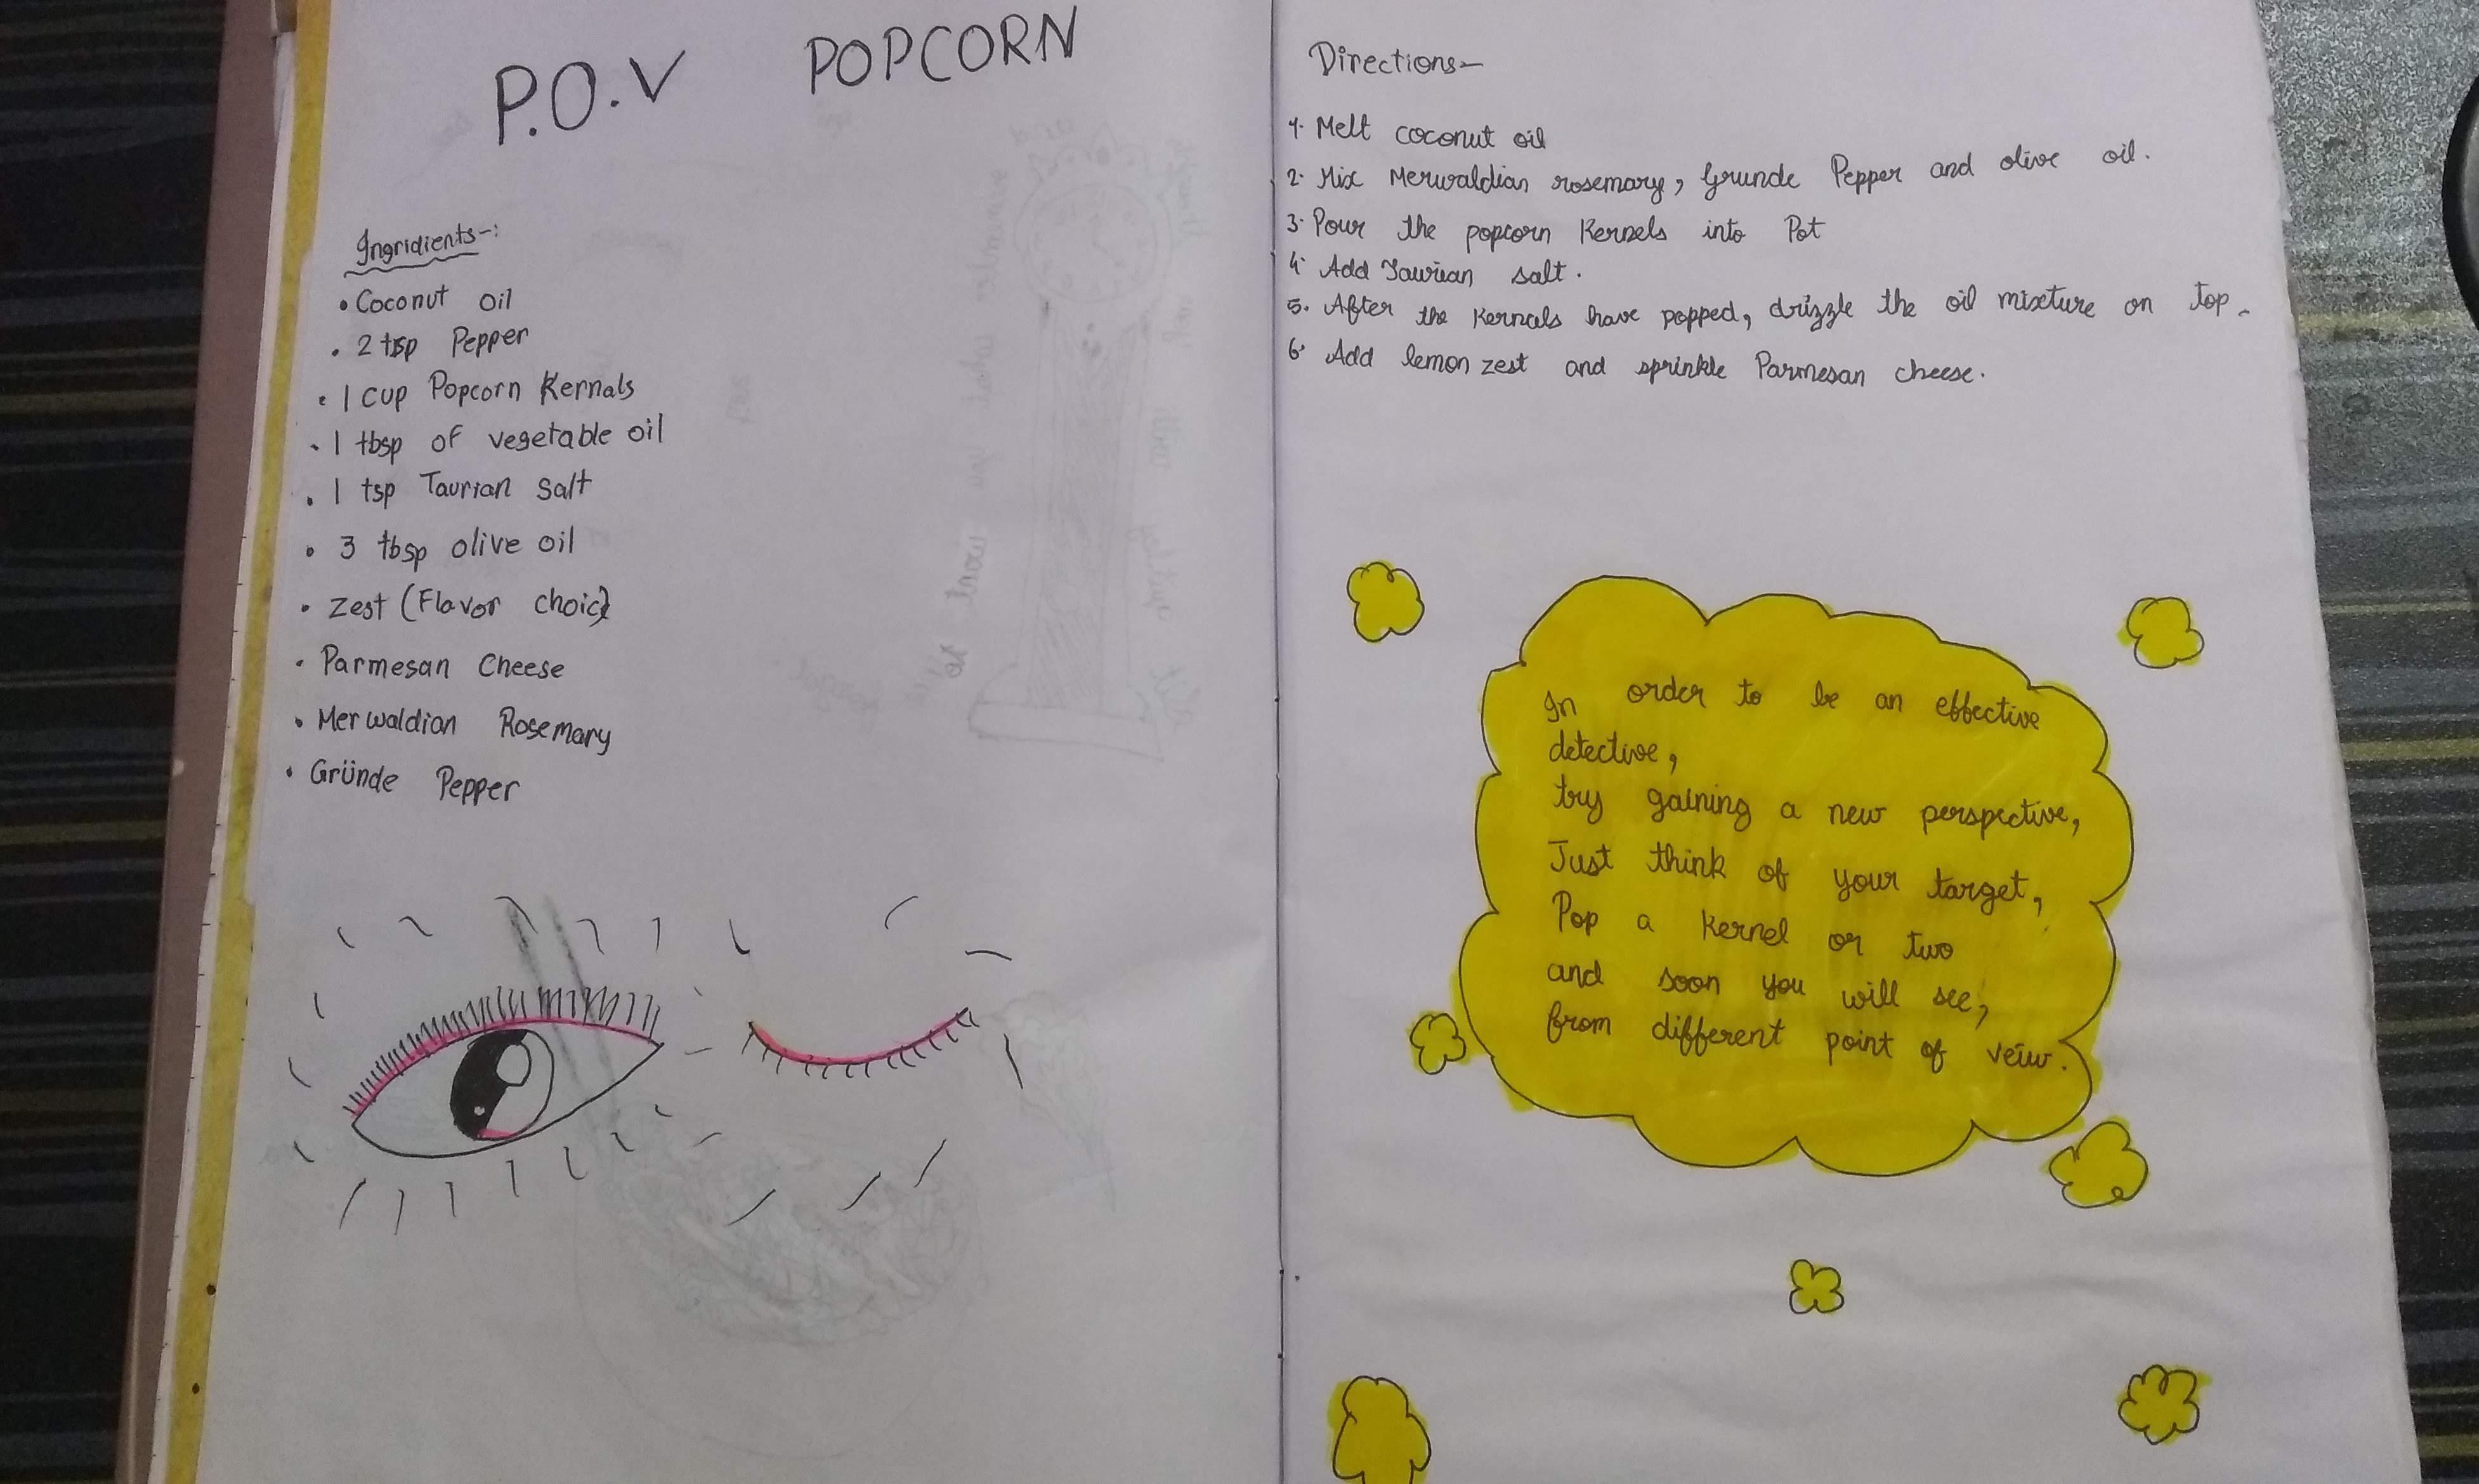 P.O.V POPCORN
Ingridients-:
• Coconut oil
• 2 tsp Pepper
• 1 cup Popcorn Kernals
• 1 tbsp of vegetable oil
• 1 tsp Taurian Salt
• 3 tbsp olive oil
• Zest (Flavor choice)
• Parmesan Cheese
• Merwaldian Rosemary
• Gründe Pepper
Directions-
1. Melt coconut oil
2. Mix Merwaldian rosemary, Grunde Pepper and olive oil.
3. Pour the popcorn Kernels into Pot
4. Add Taurian salt.
5. After the Kernals have popped, drizzle the oil mixture on top.
6. Add lemon zest and sprinkle Parmesan cheese.
In order to be an effective
detective,
try gaining a new perspective,
Just think of your target,
Pop a kernel or two
and soon you will see,
from different point of veiw.